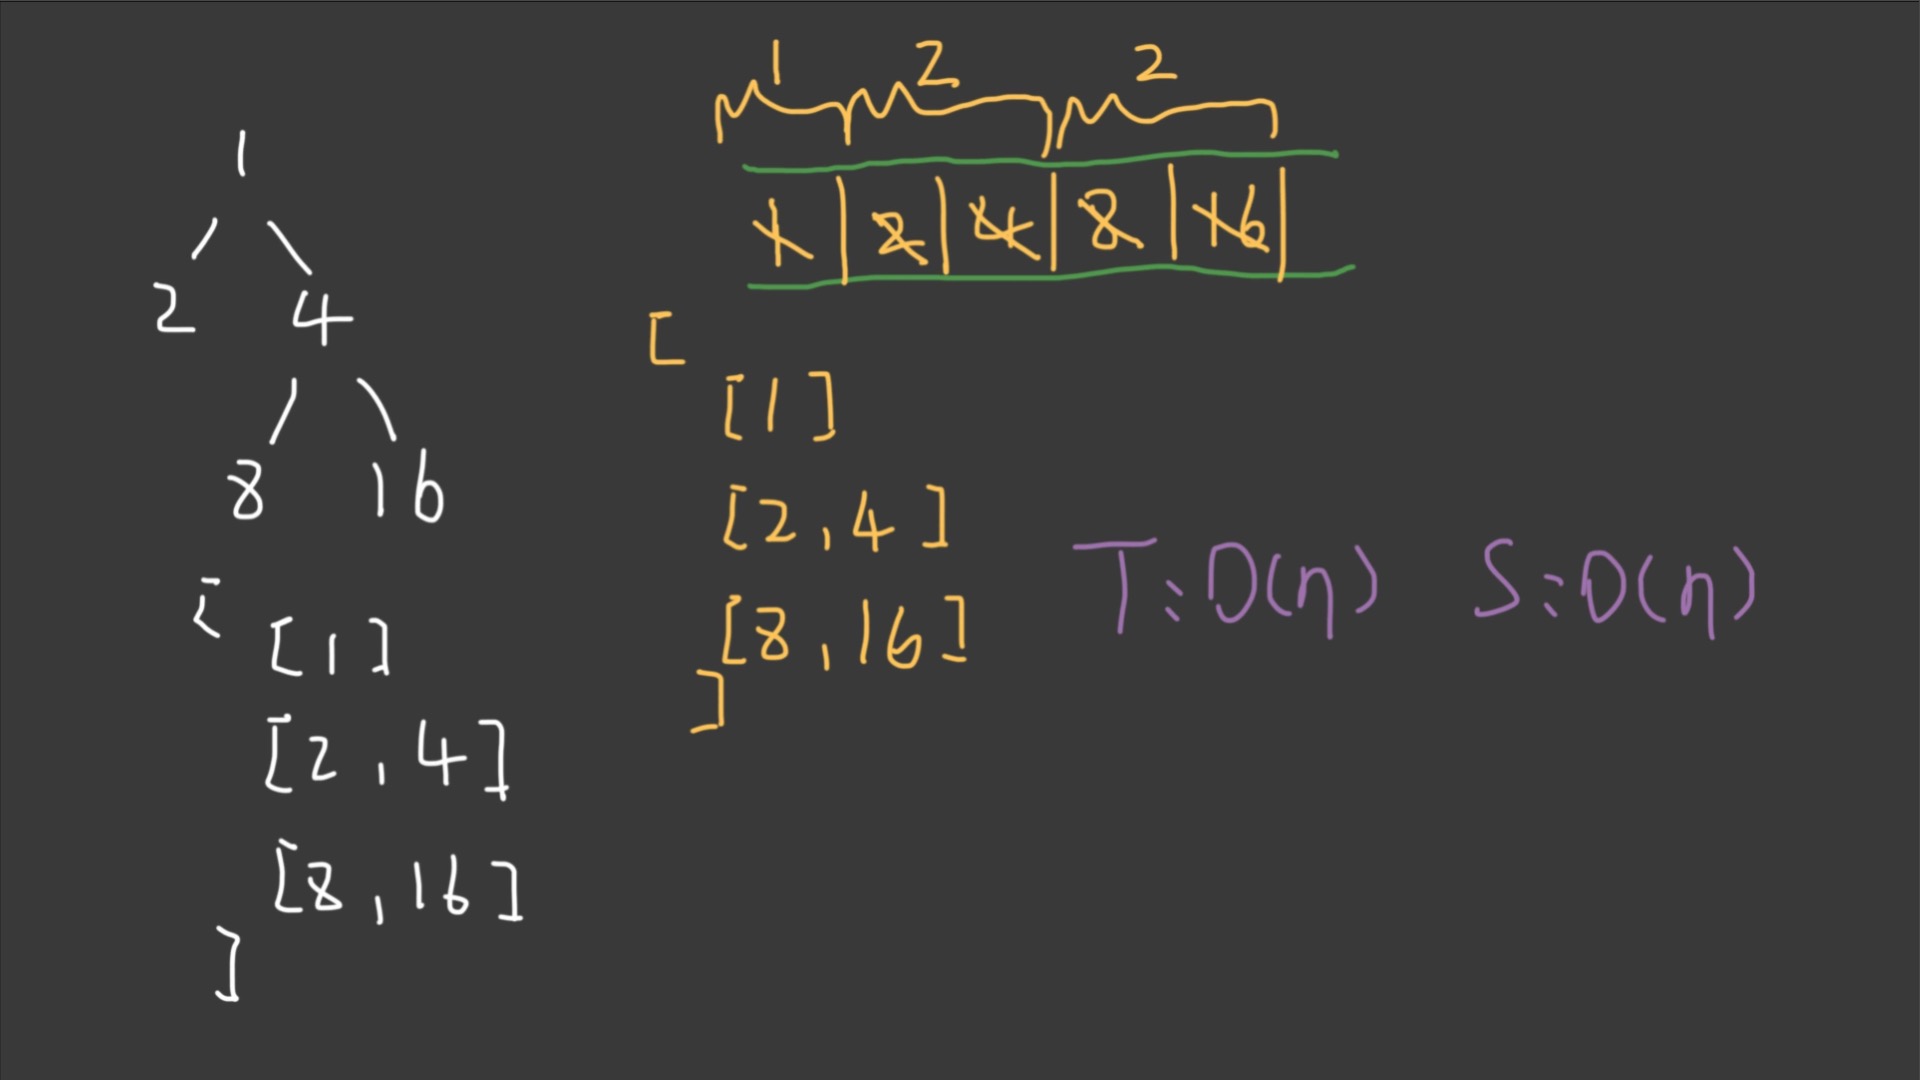 1
2 4
8 16
[
[1]
[2,4]
[8,16]
]
1 2 2
1 2 4 8 16
[
[1]
[2,4]
[8,16]
]
T:O(n) S:O(n)